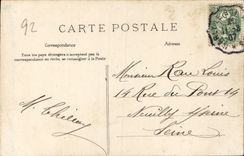 92
CARTE POSTALE
Correspondance
Adresse
Tous les pays étrangers n'acceptent pas la
correspondance au recto, se renseigner à la Poste
Monsieur Rau Louis
14 Rue du Pont 14
Neuilly s/Seine
Seine